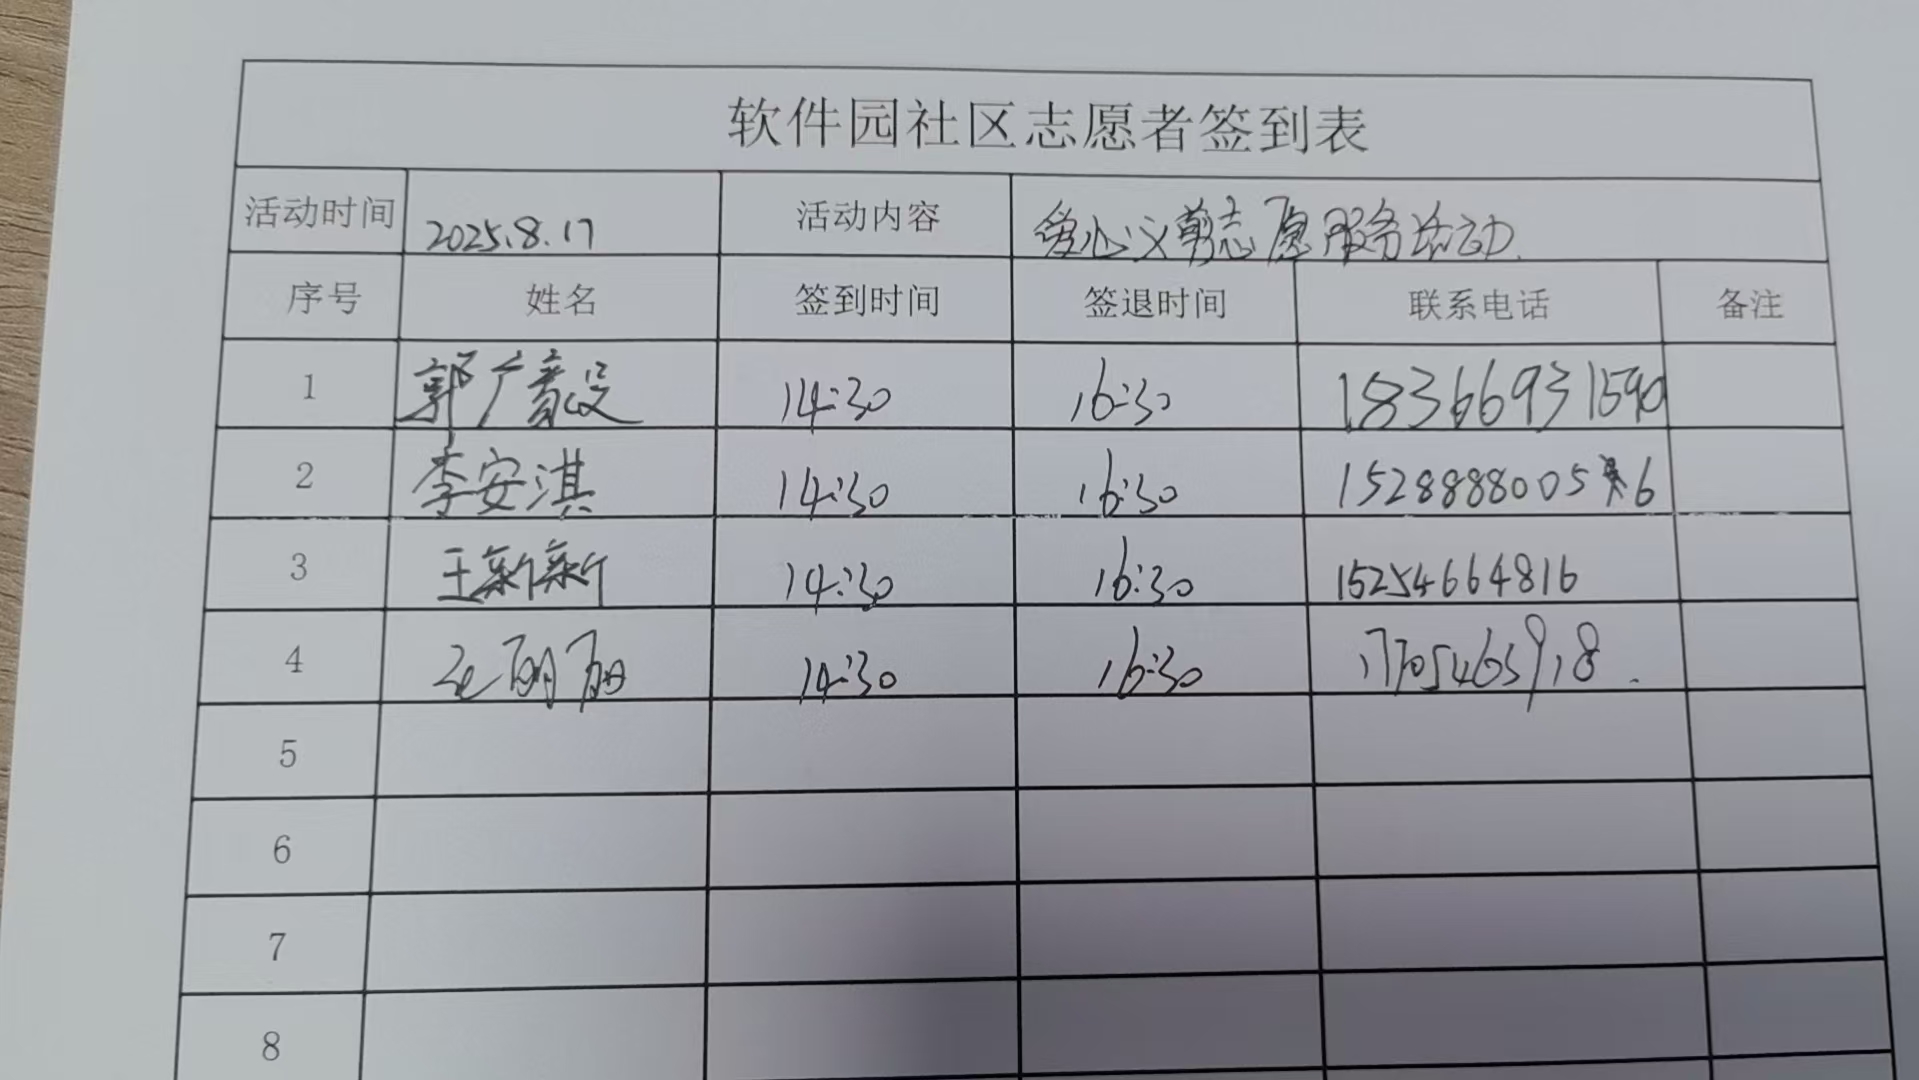 软件园社区志愿者签到表
活动时间 2025.8.17 活动内容 爱心义剪志愿服务活动.
序号 姓名 签到时间 签退时间 联系电话 备注
1 郭广 14:30 16:30 18366931590
2 李安淇 14:30 16:30 15288880056
3 王新新 14:30 16:30 15254664816
4 丽 14:30 16:30
5
6
7
8